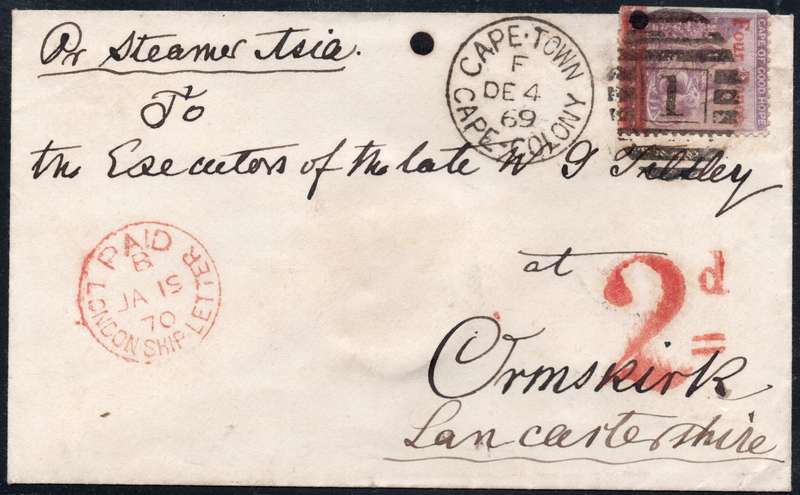 Pr Steamer Asia.
CAPE·TOWN
F
DE 4
69
CAPE-COLONY
Four
CAPE OF GOOD HOPE
1
To
the Executors of the late W G
PAID
B
JA 15
70
LONDON SHIP-LETTER
at
2d
Ormskirk
Lancastershire